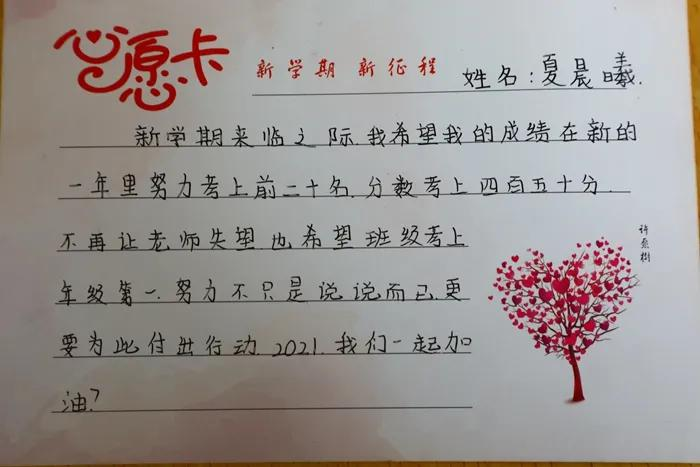 心愿卡
新学期 新征程
姓名:夏晨曦.
新学期来临之际.我希望我的成绩在新的
一年里努力考上前二十名.分数考上四百五十分.
不再让老师失望.也希望班级考上
年级第一.努力不只是说说而已.更
要为此付出行动.2021.我们一起加
油?
许愿树